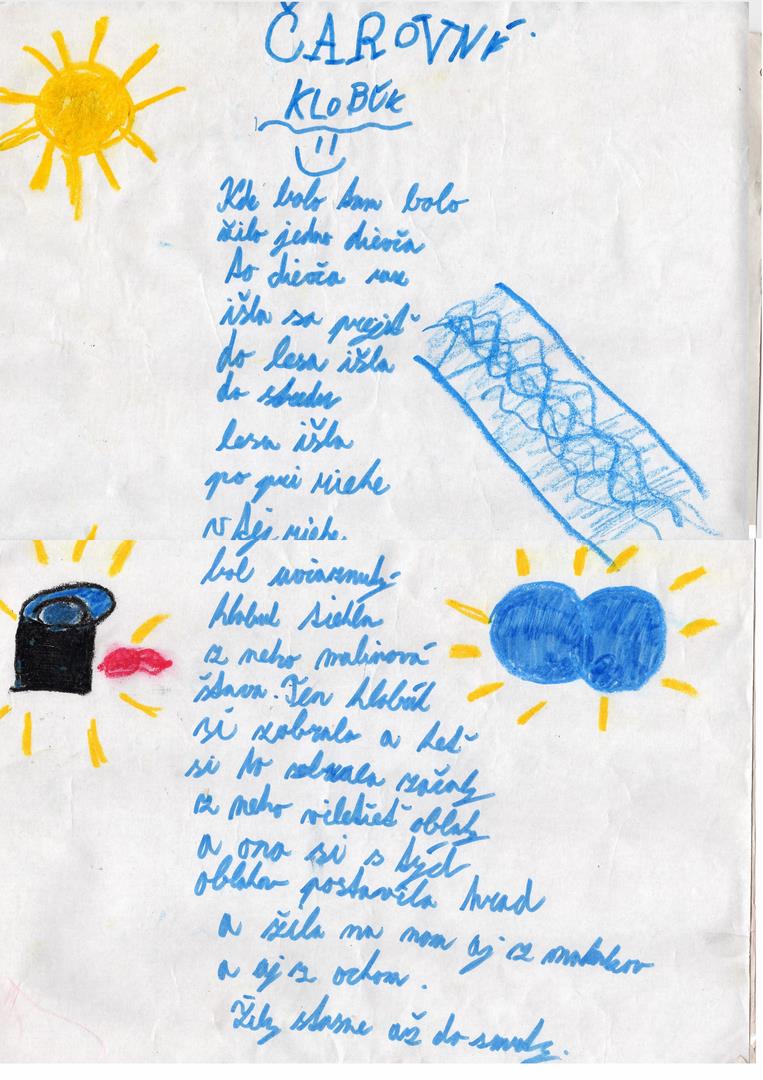 ČAROVNÝ
KLOBÚK
Kde bolo tam bolo
žilo jedno dievča
to dievča raz
išla sa prejsť
do lesa išla
do stredu
lesa išla
po pri rieke
v tej rieke.
bol uviaznutý
klobuk tiekla
z neho malinová
šťava. Ten klobúk
si zobrala a keď
si ho zobrala začaly
z neho viletieť oblaky
a ona si s tých
oblakov postavila hrad
a žila na nom aj z
a aj z ockom.
Žily stasne až do smrty.